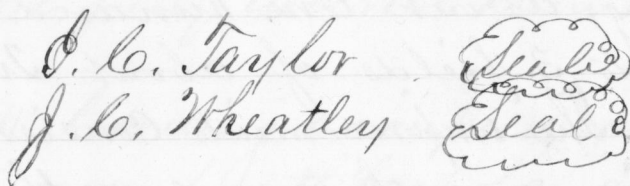 J. C. Taylor Seal
J. C. Wheatley Seal